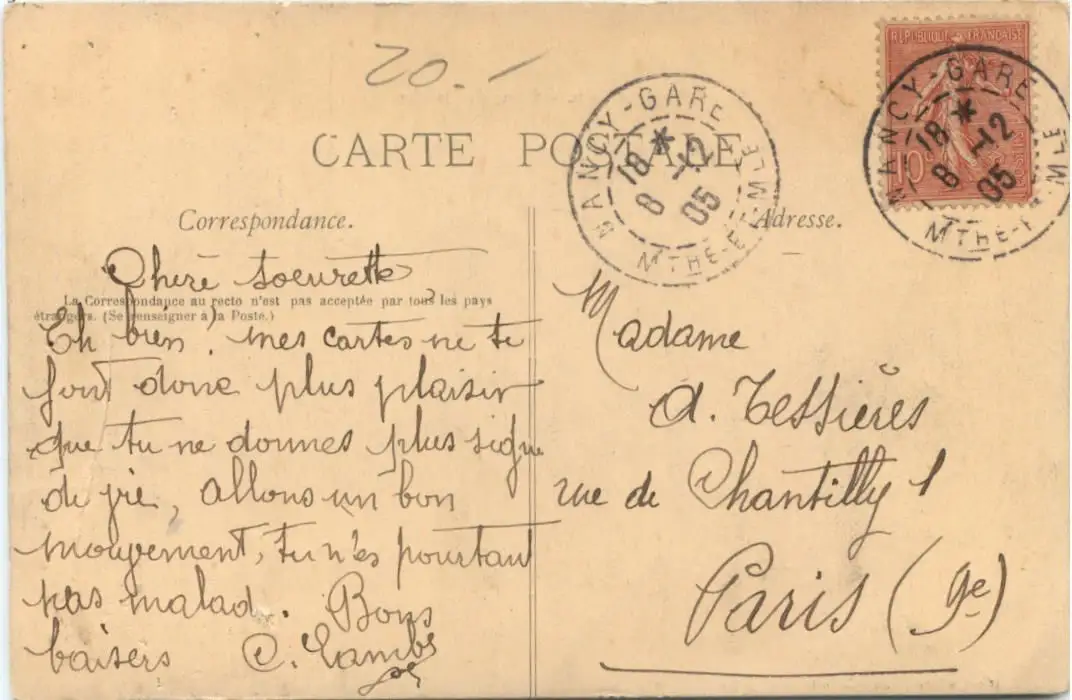 20.-
RÉPUBLIQUE FRANÇAISE
10c
NANCY-GARE
18 * 8 -12 05
MTHE-ET-MLE
NANCY-GARE
18 * 8 -12 05
MTHE-E MLE
CARTE POSTALE
Correspondance.
Adresse.
Chere soeurette
La Correspondance au recto n'est pas acceptée par tous les pays
étrangers. (Se renseigner à la Poste.)
Eh bien! mes cartes ne te
font donc plus plaisir
que tu ne donnes plus signe
de vie, allons un bon
mouvement, tu n'es pourtant
pas malad. Bons
baisers C. Lambs
Madame
A. Tessières
rue de Chantilly 1
Paris (9e)